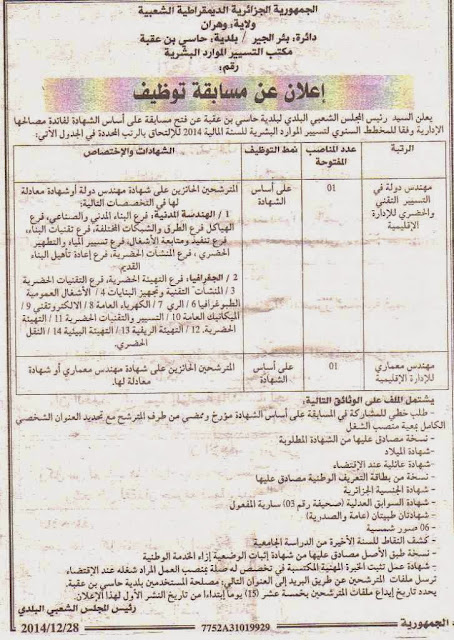 الجمهورية الجزائرية الديمقراطية الشعبية
ولاية: وهران
دائرة: بئر الجير / بلدية: حاسي بن عقبة
مكتب التسيير الموارد البشرية
رقم:
إعلان عن مسابقة توظيف
يعلن السيد رئيس المجلس الشعبي البلدي لبلدية حاسي بن عقبة عن فتح مسابقة على أساس الشهادة لفائدة مصالحها
الإدارية وفقا للمخطط السنوي لتسيير الموارد البشرية للسنة المالية 2014 للإلتحاق بالرتب المحددة في الجدول الآتي:
الرتبة
عدد المناصب المفتوحة
نمط التوظيف
الشهادات والإختصاص
مهندس دولة في
التسيير التقني
والحضري للإدارة
الإقليمية
01
على أساس
الشهادة
المترشحين الحائزين على شهادة مهندس دولة أوشهادة معادلة
لها في التخصصات التالية:
1 / الهندسة المدنية: فرع البناء المدني والصناعي، فرع
الهياكل فرع الطرق والشبكات المختلفة، فرع تقنيات البناء،
فرع تنفيذ ومتابعة الأشغال، فرع تسيير المياه والتطهير
الحضري، فرع المنشآت الحضرية، فرع إعادة تأهيل البناء
القديم
2 / الجغرافيا، فرع التهيئة الحضرية، فرع التقنيات الحضرية
3 / المنشآت التقنية وتجهيز البنايات 4 / الأشغال العمومية
الطبوغرافيا 6 / الري 7 / الكهرباء العامة 8 / الالكتروتقني 9 /
الميكانيك العامة 10 / التسيير والتقنيات الحضرية 11 / التهيئة
الحضرية، 12 / التهيئة الريفية 13 / التهيئة البيئية 14 / النقل
الحضري.
مهندس معماري
للإدارة الإقليمية
01
على أساس
الشهادة
المترشحين الحائزين على شهادة مهندس معماري أو شهادة
معادلة لها.
يشتمل الملف على الوثائق التالية:
- طلب خطي للمشاركة في المسابقة على أساس الشهادة مؤرخ وممضي من طرف المترشح مع تحديد العنوان الشخصي
الكامل بمعية منصب الشغل
- نسخة مصادق عليها من الشهادة المطلوبة
- شهادة الميلاد
- شهادة عائلية عند الإقتضاء
- نسخة من بطاقة التعريف الوطنية مصادق عليها
- شهادة الجنسية الجزائرية
- شهادة السوابق العدلية (صحيفة رقم 03) سارية المفعول
- شهادتان طبيتان (عامة والصدرية)
- 06 صور شمسية
- كشف النقاط للسنة الأخيرة من الدراسة الجامعية
- نسخة طبق الأصل مصادق عليها من شهادة إثبات الوضعية إزاء الخدمة الوطنية
- شهادة عمل تثبت الخبرة المهنية المكتسبة في تخصص له صلة بمنصب العمل المراد شغله عند الإقتضاء
ترسل ملفات المترشحين عن طريق البريد إلى العنوان التالي: مصلحة المستخدمين بلدية حاسي بن عقبة.
يحدد تاريخ إيداع ملفات المترشحين بخمسة عشر (15) يوماً إبتداءا من تاريخ النشر الأول لهذا الإعلان.
رئيس المجلس الشعبي البلدي
الجمهورية
7752A31019929
2014/12/28